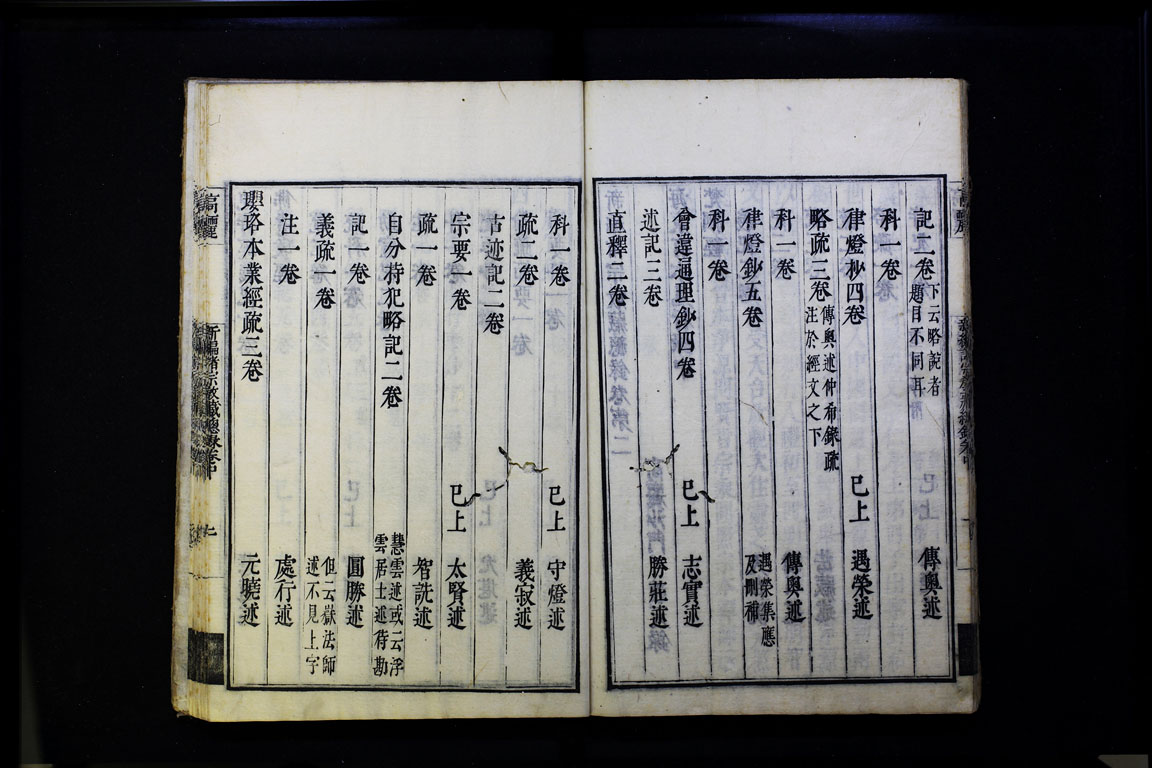 記二卷 下云略說者題目不同耳 傳奧述
科一卷
律燈抄四卷 已上 遇榮述
略疏三卷 傳奧述仲希錄疏注於經文之下
科一卷 傳奧述
律燈鈔五卷 遇榮集應及刪補
科一卷
會違通理鈔四卷 已上 志實述
述記三卷 勝莊述
直釋二卷
科一卷 已上 守燈述
疏二卷 義寂述
古迹記二卷
宗要一卷 已上 太賢述
疏一卷 智詵述
自分持犯略記二卷 慧雲述或云浮雲居士述待勘
記一卷 圓勝述
義疏一卷 但云嶽法師述不見上字
注一卷 處行述
瓔珞本業經疏三卷 元曉述
高麗
新編諸宗教藏總錄卷中
七